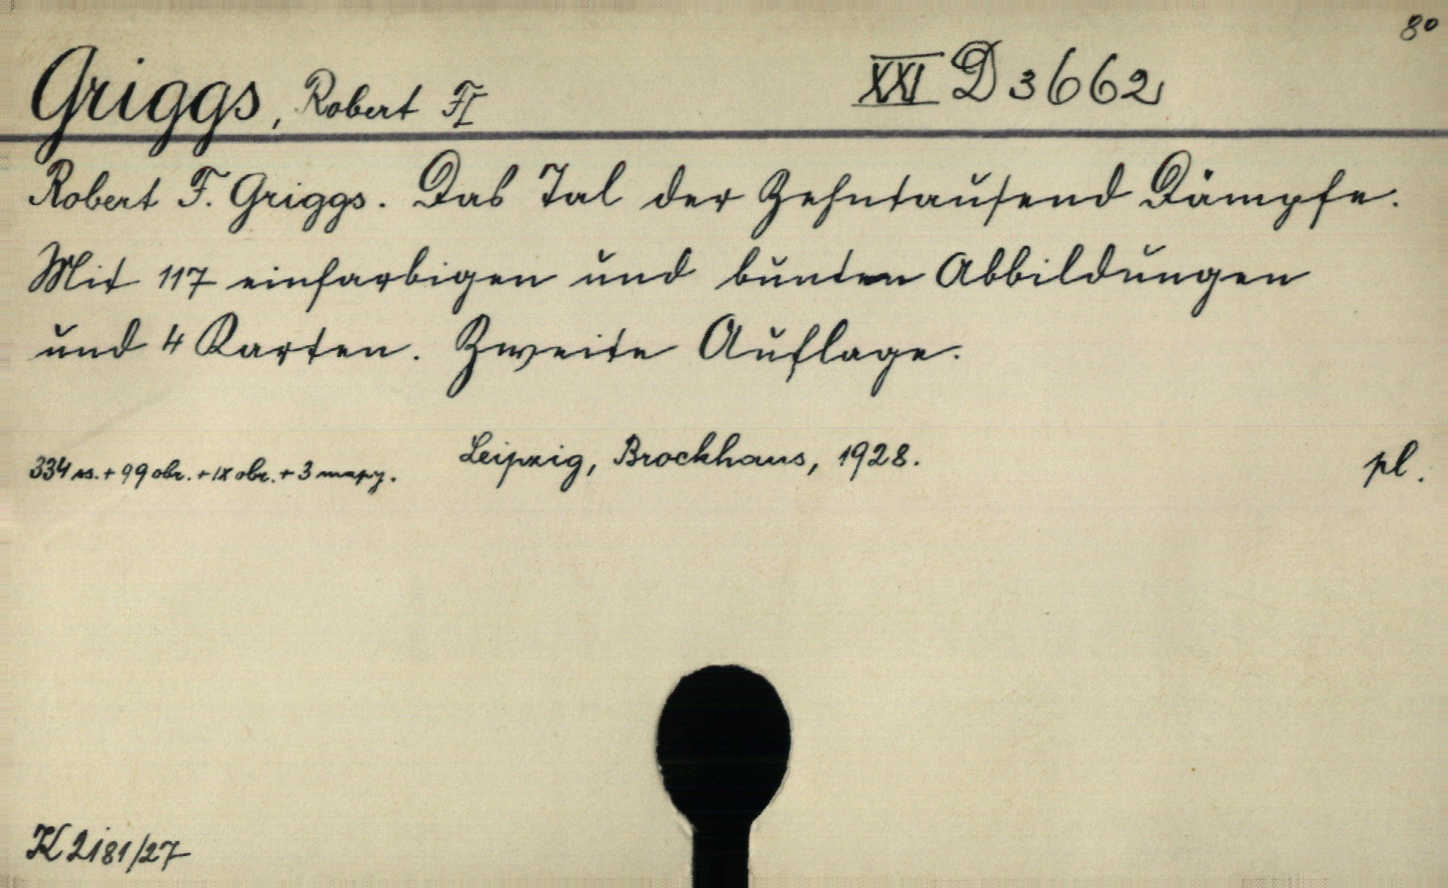 8°
Griggs, Robert F. XXI D 3662
Robert F. Griggs. Das Tal der Zehntausend Dämpfe.
Mit 117 einfarbigen und bunten Abbildungen
und 4 Karten. Zweite Auflage.
Leipzig, Brockhaus, 1928.
334 ss. + 99 obr. + IX obr. + 3 mapy. pl.
K 2181/27